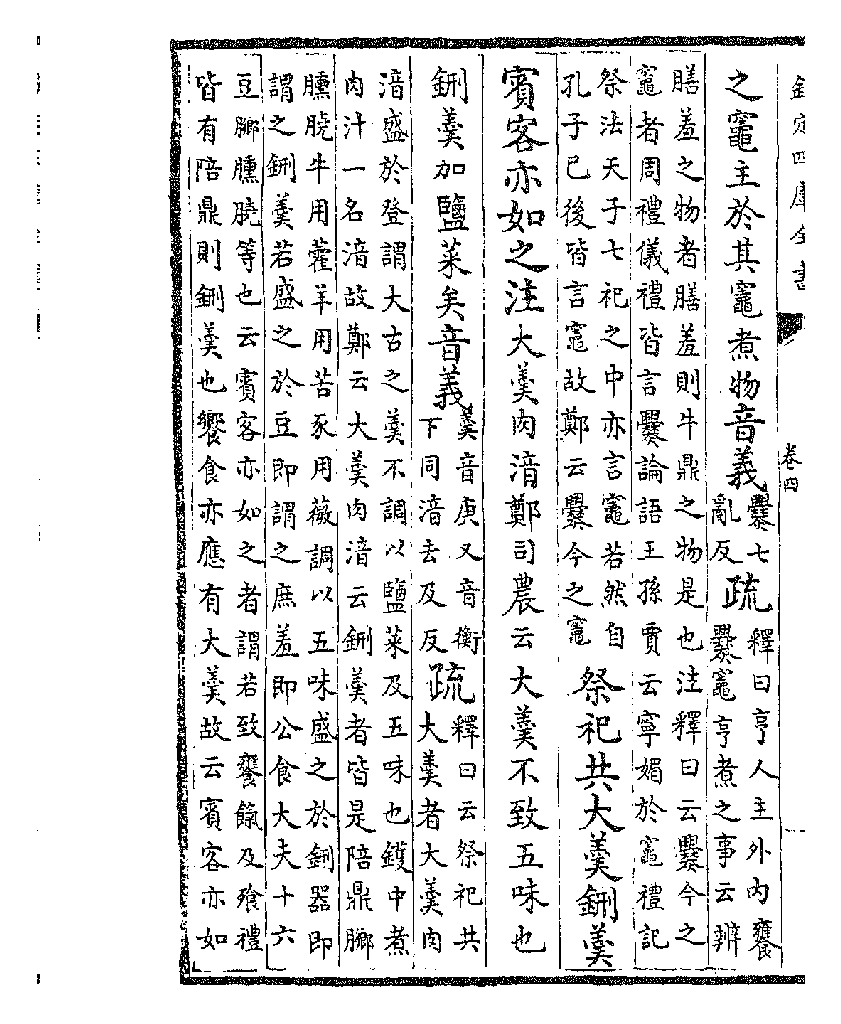 欽定四庫全書
卷四
之竈主於其竈煮物音義爨七亂反疏釋曰亨人主外内饔
爨竈亨煮之事云辨
膳羞之物者膳羞則牛鼎之物是也注釋曰云爨今之
竈者周禮儀禮皆言爨論語王孫賈云寧媚於竈禮記
祭法天子七祀之中亦言竈若然自
孔子已後皆言竈故鄭云爨今之竈祭祀共大羮鉶羮
賓客亦如之注大羮肉湆鄭司農云大羮不致五味也
鉶羮加鹽菜矣音義羮音庚又音衡下同湆去及反疏釋曰云祭祀共
大羮者大羮肉
湆盛於登謂大古之羮不調以鹽菜及五味也鑊中煮
肉汁一名湆故鄭云大羮肉湆云鉶羮者皆是陪鼎膷
臐膮牛用藿羊用苦豕用薇調以五味盛之於鉶器即
謂之鉶羮若盛之於豆即謂之庶羞即公食大夫十六
豆膷臐膮等也云賓客亦如之者謂若致饔餼及飱禮
皆有陪鼎則鉶羮也饗食亦應有大羮故云賓客亦如